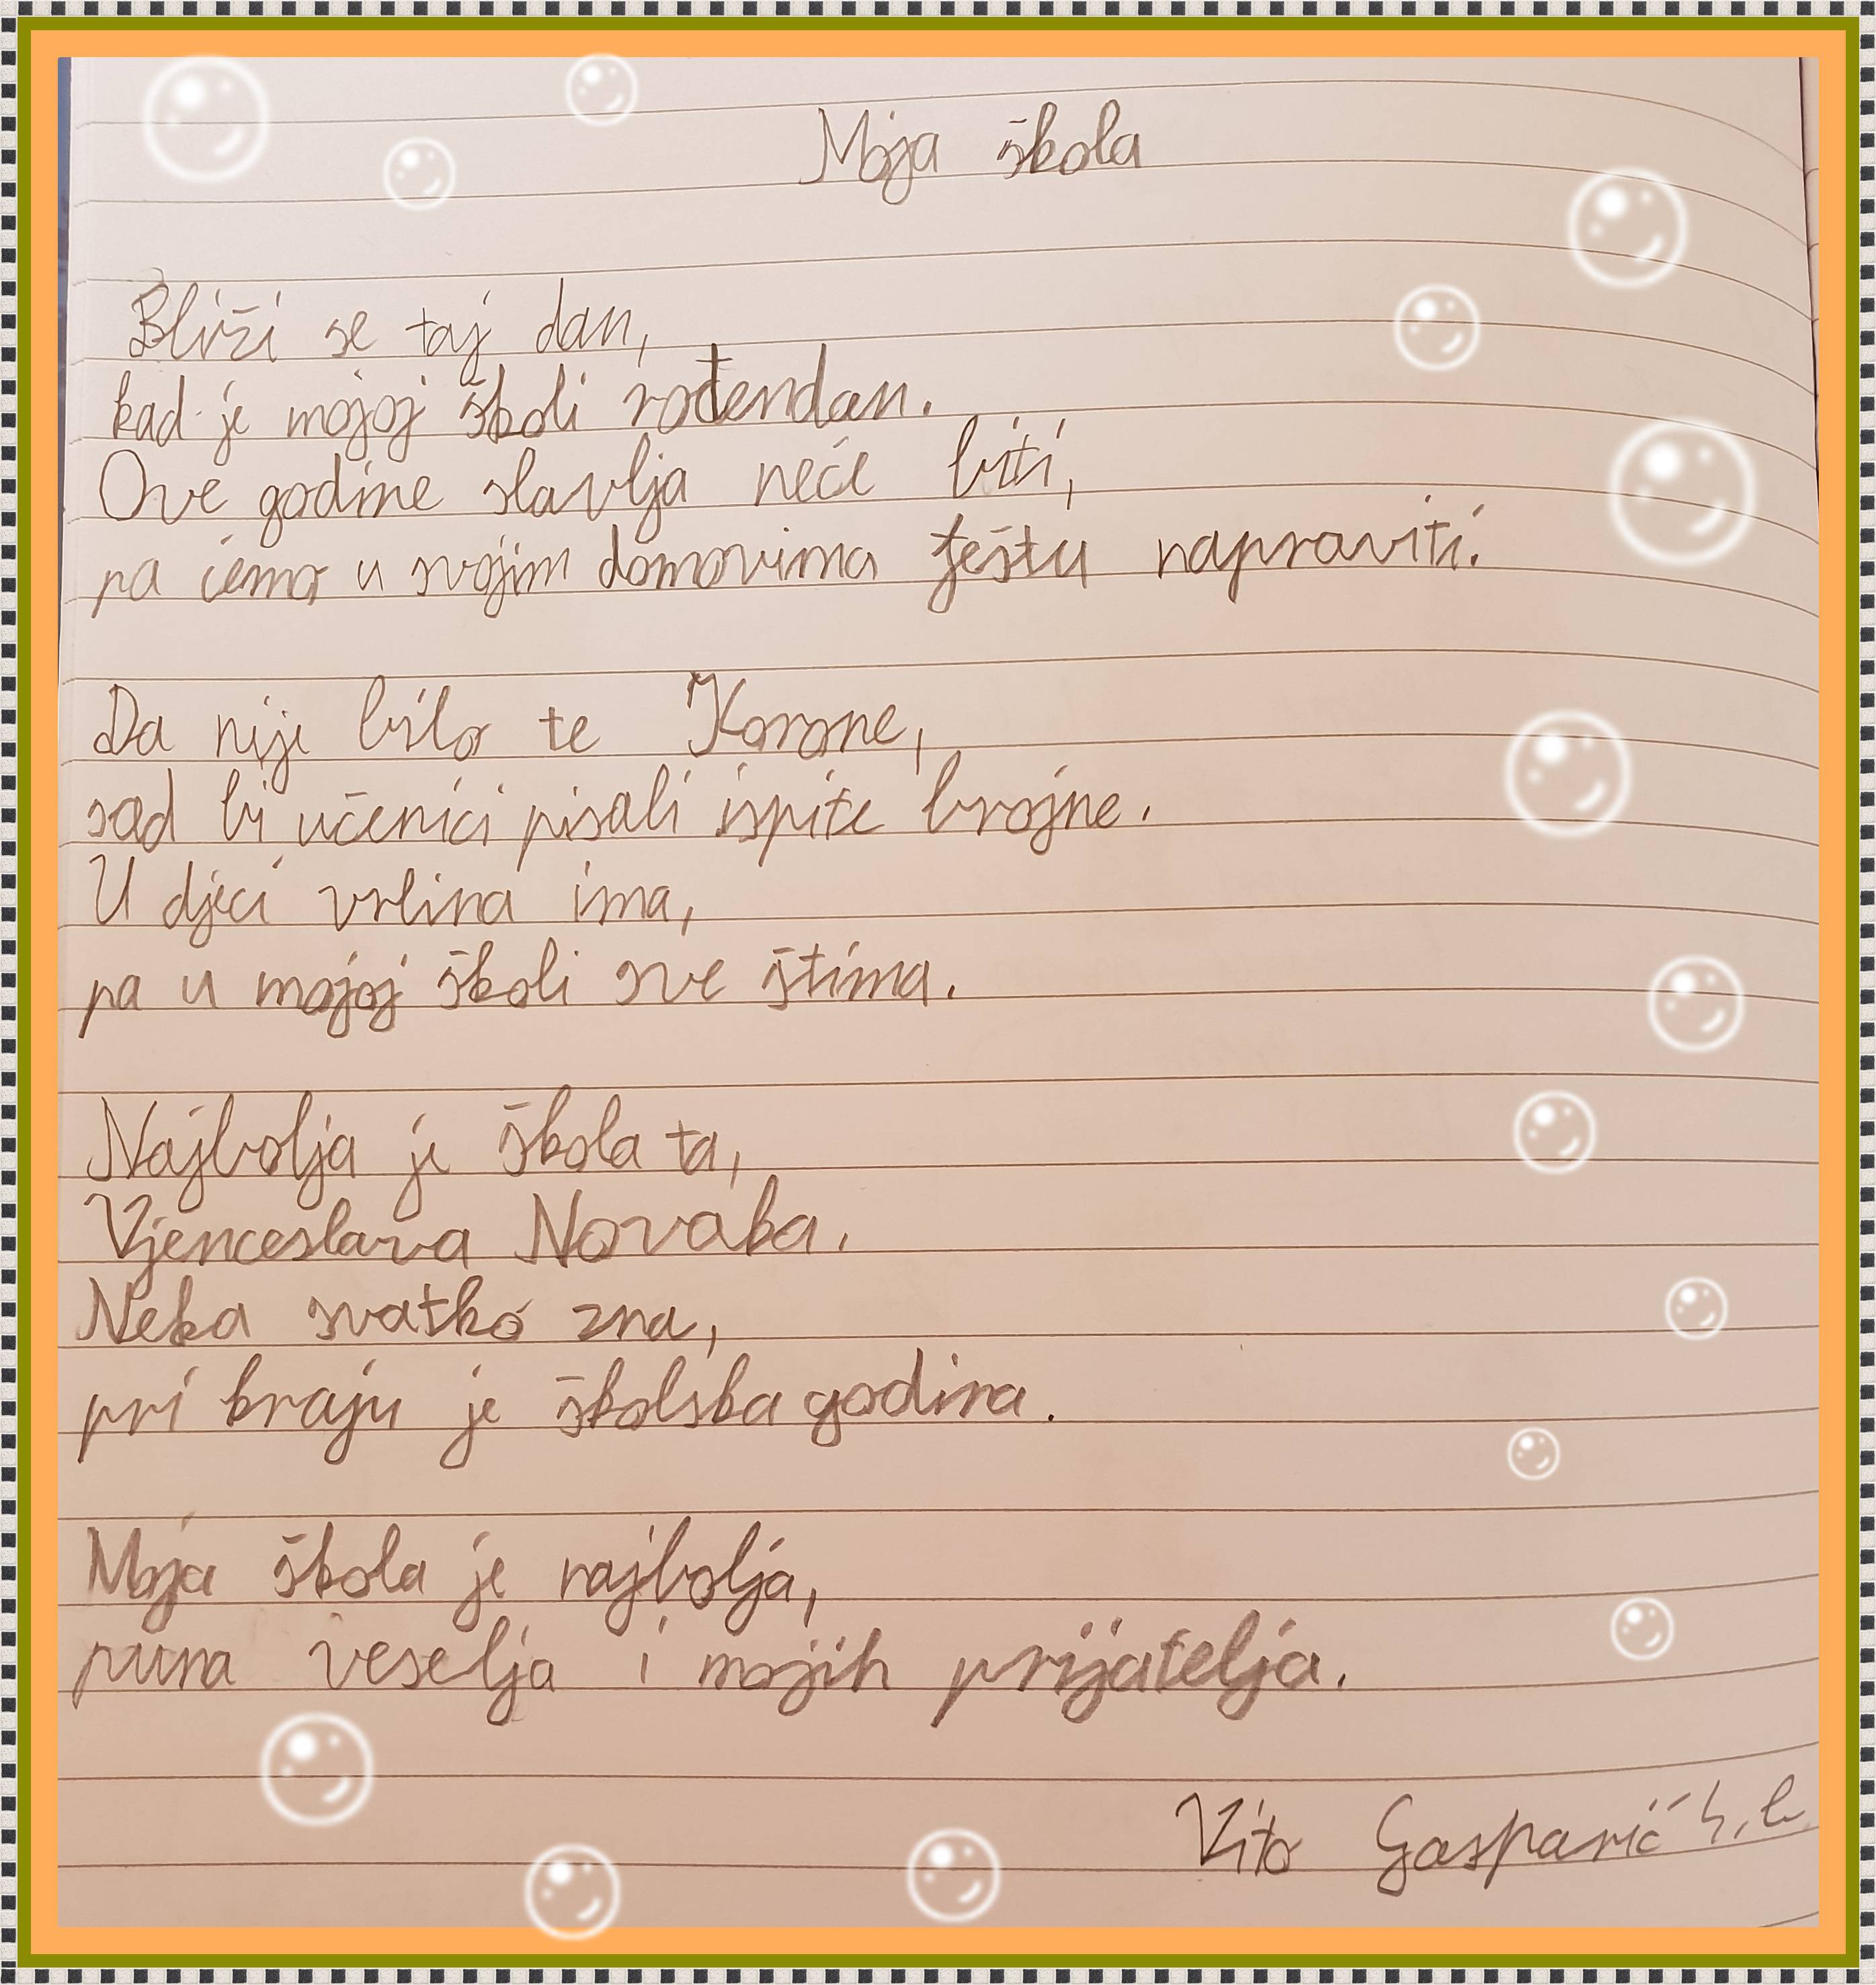 Moja škola
Bliži se taj dan,
kad je mojoj školi rođendan.
Ove godine slavlja neće biti,
pa ćemo u svojim domovima feštu napraviti.
Da nije bilo te Korone,
sad bi učenici pisali ispite brojne.
U djeci vrlina ima,
pa u mojoj školi sve štima.
Najbolja je škola ta,
Vjenceslava Novaka.
Neka svatko zna,
pri kraju je školska godina.
Moja škola je najbolja,
puna veselja i mojih prijatelja.
Vito Gasparić 4. b